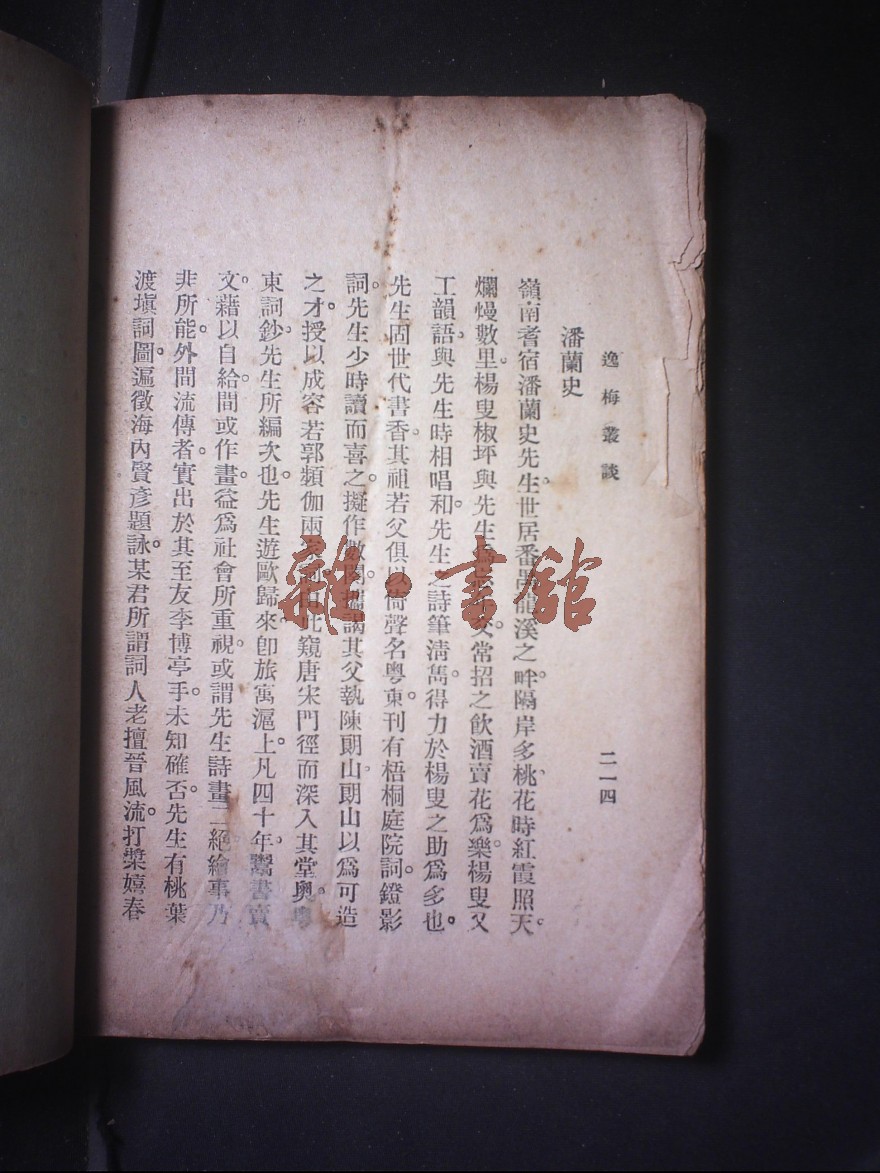 逸梅叢談
二一四
潘蘭史
嶺南耆宿潘蘭史先生。世居番禺龍溪之畔。隔岸多桃、花時紅霞照天。
爛熳數里。楊叟椒坪與先生爲忘年交。常招之飲酒賣花爲樂。楊叟又
工韻語。與先生時相唱和。先生之詩筆淸雋。得力於楊叟之助爲多也。
先生固世代書香。其祖若父俱以倚聲名粤東。刊有梧桐庭院詞。鐙影
詞。先生少時讀而喜之。擬作數闋。攜謁其父執陳朗山。朗山以爲可造
之才。授以成容若郭頻伽兩家詞。由此窺唐宋門徑而深入其堂奧。粤
東詞鈔。先生所編次也。先生遊歐歸來。卽旅寓滬上。凡四十年。鬻書賣
文。藉以自給。間或作畫。益爲社會所重視。或謂先生詩畫二絕。繪事乃
非所能。外間流傳者。實出於其至友李博亭手。未知確否。先生有桃葉
渡塡詞圖。遍徵海內賢彥題詠。某君所謂詞人老擅晉風流。打槳嬉春
雜·書館